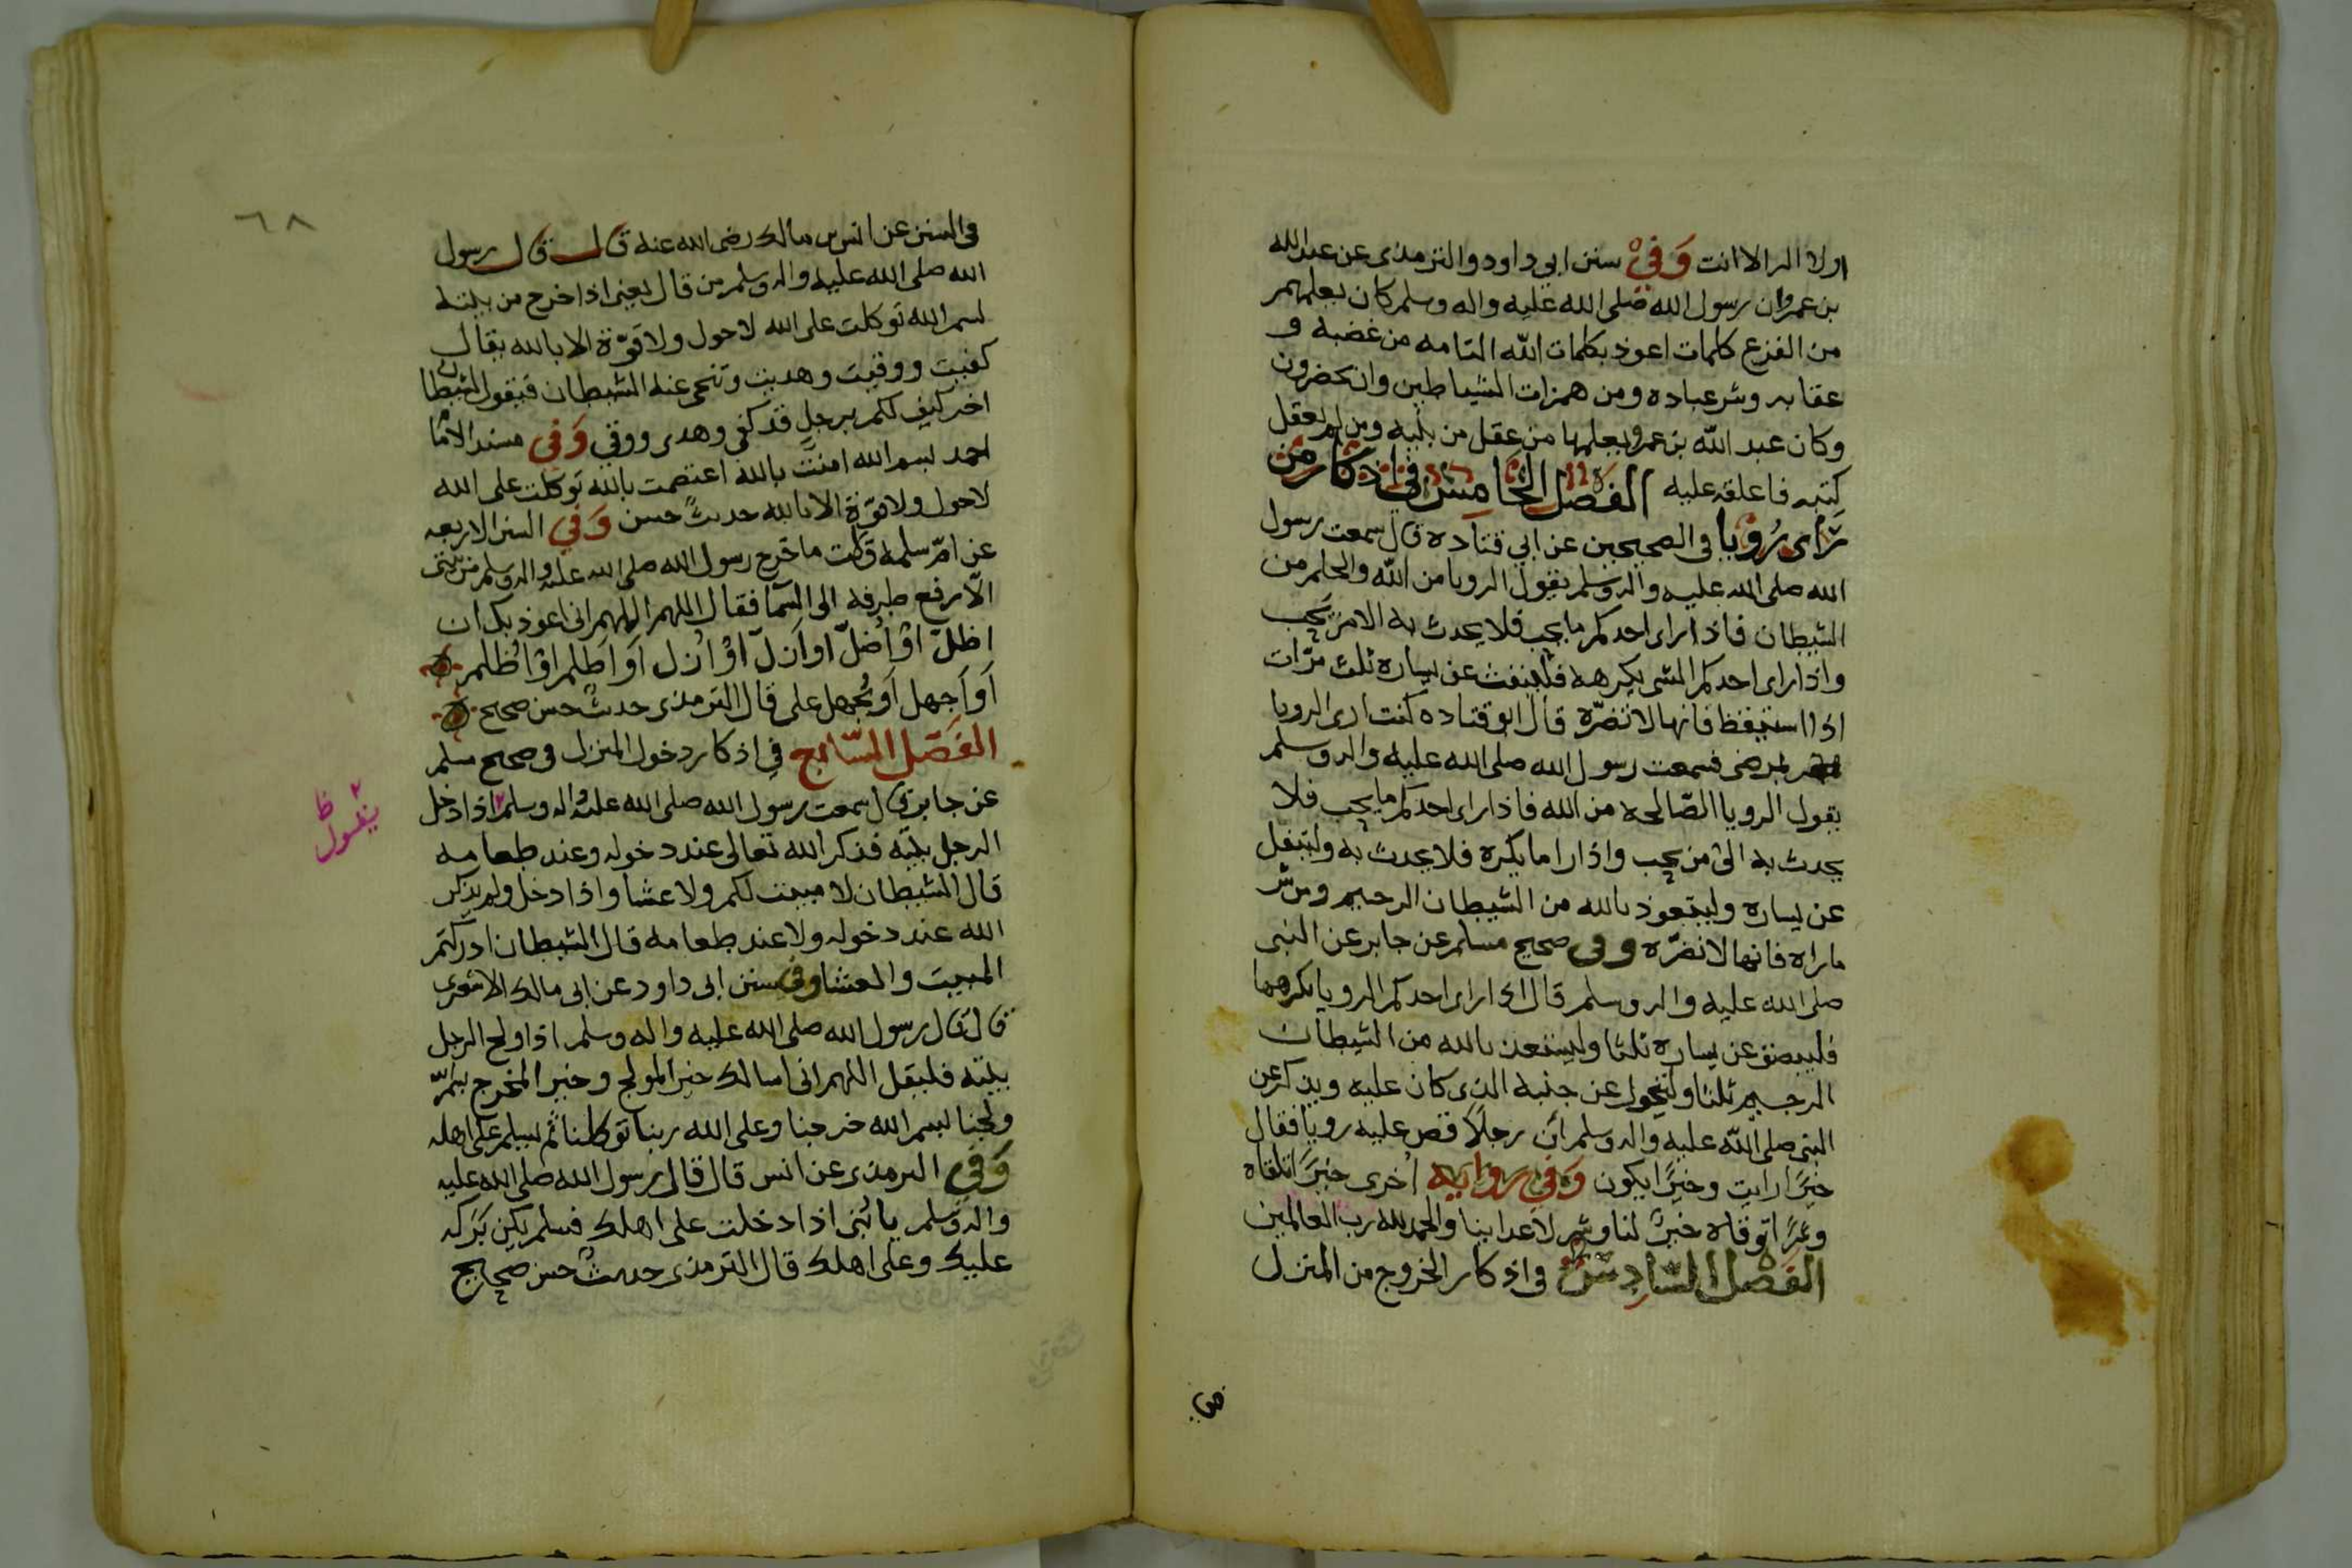 اولا اله الا انت وَفي سنن ابي داود والترمذى عن عبد الله
بن عمرو ان رسول الله صلى الله عليه واله وسلم كان يعلمهم
من الفزع كلمات اعوذ بكلمات الله التامه من غضبه و
عقابه وشر عباده ومن همزات الشياطين وان يحضرون
وكان عبد الله بن عمرو يعلمها من عقل من بنيه ومن لم يعقل
كتبه فاعلقه عليه الفصل الخامس في اذكار من
رأى رُؤيا في الصحيحين عن ابي قتاده قال سمعت رسول
الله صلى الله عليه واله وسلم يقول الرويا من الله والحلم من
الشيطان فاذا راى احدكم ما يحب فلا يحدث به الا من يحب
واذا راى احدكم الشى يكرهه فلينفث عن يساره ثلث مرّات
اذا استيقظ فانها لا تضرّه قال ابو قتاده كنت ارى الرويا
تمرضنى فسمعت رسول الله صلى الله عليه واله وسلم
يقول الرويا الصّالحه من الله فاذا راى احدكم ما يحب فلا
يحدث به الى من يحب واذا راما يكره فلا يحدث به وليتفل
عن يساره وليتعوذ بالله من الشيطان الرجيم ومن شر
ما راه فانها لا تضرّه وفى صحيح مسلم عن جابر عن النبى
صلى الله عليه واله وسلم قال اذا راى احدكم الرويا يكرهها
فليبصق عن يساره ثلثا وليستعذ بالله من الشيطان
الرجيم ثلثا وليتحول عن جنبه الذى كان عليه ويذكر عن
النبى صلى الله عليه واله وسلم ان رجلاً قص عليه رويا فقال
خيرًا رايت وخيرًا يكون وَفي روايه اخرى خيرًا تلقاه
وشرًا توقاه خيرٌ لنا وشر لاعداينا والحمد لله رب العالمين
الفصل السّادس في اذكار الخروج من المنزل
في
٦٨
فى السنن عن انس بن مالك رضى الله عنه قال قال رسول
الله صلى الله عليه واله وسلم من قال يعنى اذا خرج من بيته
بسم الله توكلت على الله لا حول ولا قوّة الا بالله يقال
كفيت ووقيت وهديت وتنحى عنه الشيطان فيقول الشيطان
اخر كيف لكم برجل قد كفى وهدى ووقي وَفي مسند الامام
احمد بسم الله امنت بالله اعتصمت بالله توكلت على الله
لا حول ولا قوّة الا بالله حديثٌ حسن وَفي السنن الاربعه
عن امّ سلمه قالت ما خرج رسول الله صلى الله عليه واله وسلم من بيتى
الّا رفع طرفه الى السّما فقال اللهم اللهم انى اعوذ بك ان
اضلّ اوْ اُضلّ او اَزلّ اوْ اُزل اَو اَظلم اوْ اُظلم
اَو اَجهل اَو يُجهل على قال الترمذى حديث حسن صحيح
الفَصْل السّابع في اذكار دخول المنزل فى صحيح مسلم
عن جابر قال سمعت رسول الله صلى الله عليه واله وسلم اذا دخل
يقول ظ
الرجل بيته فذكر الله تعالى عند دخوله وعند طعامه
قال الشيطان لا مبيت لكم ولا عشا واذا دخل ولم يذكر
الله عند دخوله ولا عند طعامه قال الشيطان ادركتم
المبيت والعشا وفى سنن ابى داود عن ابى مالك الاشعرى
قال قال رسول الله صلى الله عليه واله وسلم اذا ولج الرجل
بيته فليقل اللهم انى اسالك خير المولج وخير المخرج بسم الله
ولجنا بسم الله خرجنا وعلى الله ربنا توكلنا ثم ليسلم على اهله
وَفي الترمذى عن انس قال قال رسول الله صلى الله عليه
واله وسلم يا بُنى اذا دخلت على اهلك فسلم يكن بَرَكه
عليك وعلى اهلك قال الترمذى حديثٌ حسن صحيح